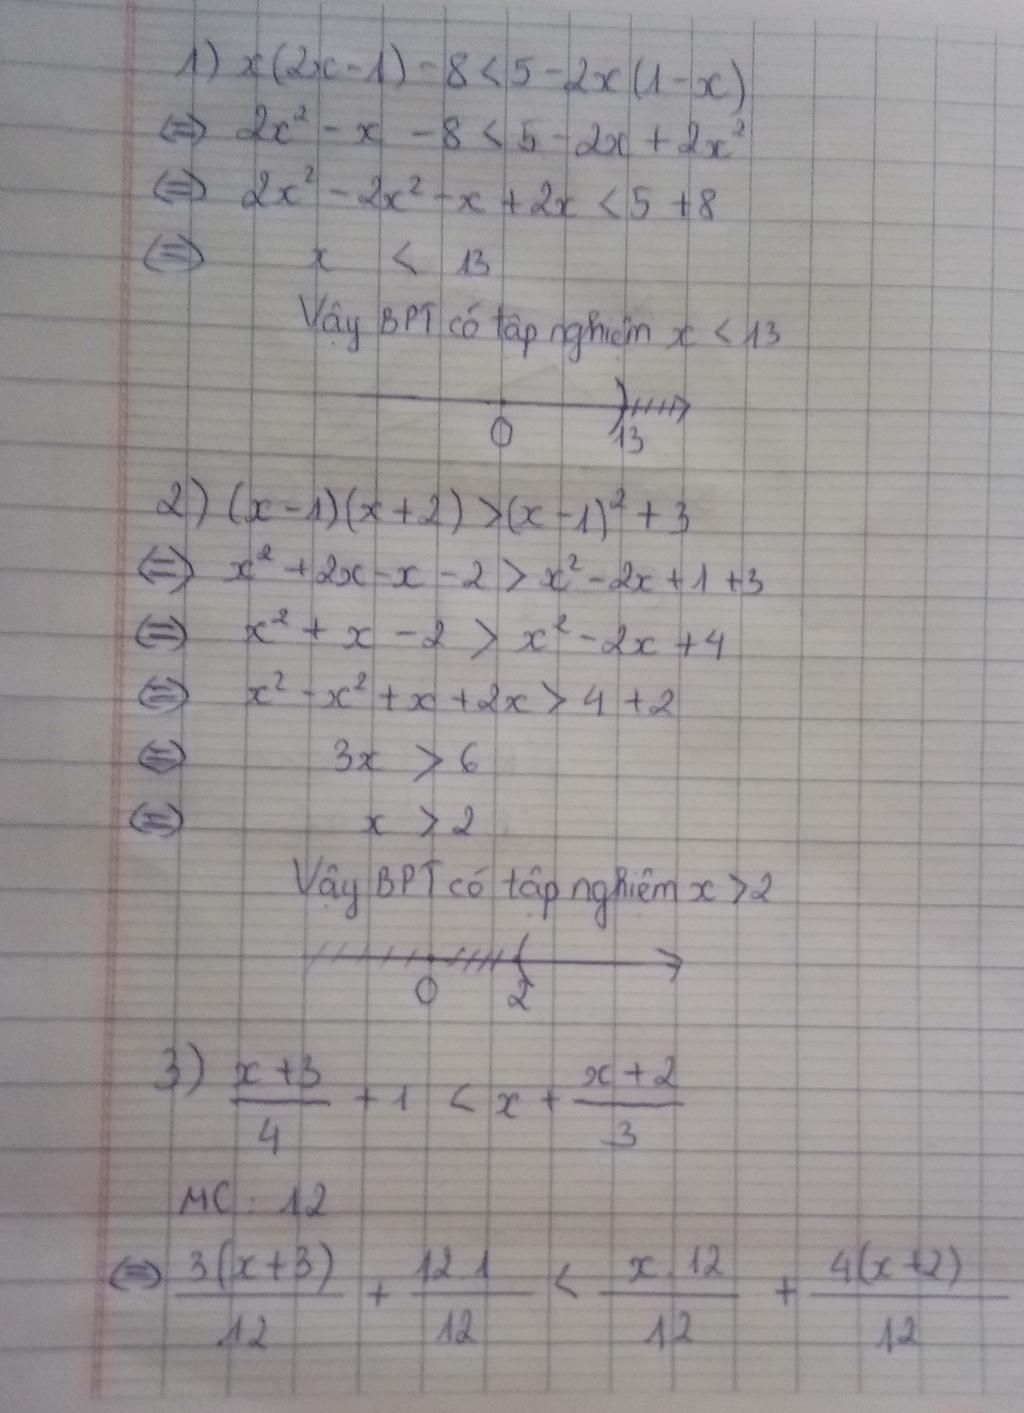 1) x(2x-1) - 8 < 5 - 2x(1-x)
⇔ 2x² - x - 8 < 5 - 2x + 2x²
⇔ 2x² - 2x² - x + 2x < 5 + 8
⇔ x < 13
Vậy BPT có tập nghiệm x < 13
0 13
2) (x-1)(x+2) > (x-1)² + 3
⇔ x² + 2x - x - 2 > x² - 2x + 1 + 3
⇔ x² + x - 2 > x² - 2x + 4
⇔ x² - x² + x + 2x > 4 + 2
⇔ 3x > 6
⇔ x > 2
Vậy BPT có tập nghiệm x > 2
0 2
3) (x+3)/4 + 1 < x + (x+2)/3
MC: 12
⇔ 3(x+3)/12 + 12.1/12 < x.12/12 + 4(x+2)/12